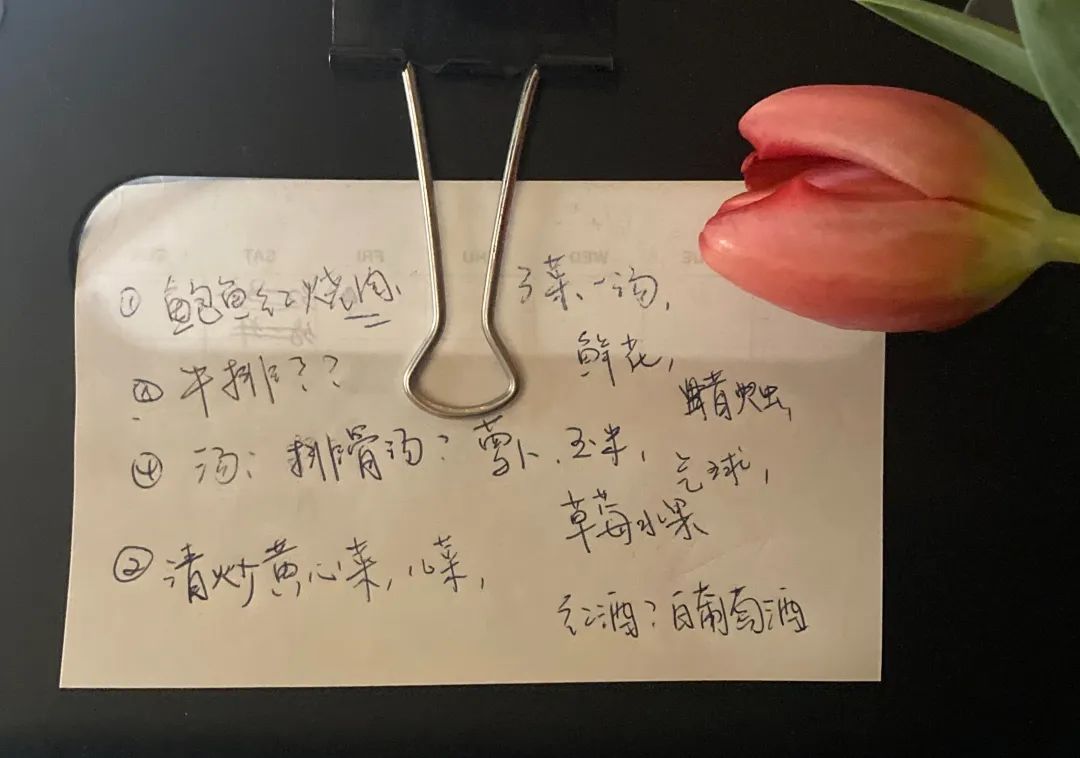 ① 鲍鱼红烧肉、
3菜一汤,
鲜花,
② 牛排??
蜡烛,
④ 汤: 排骨汤? 萝卜、玉米,
气球,
草莓水果
② 清炒黄心菜, 心菜,
红酒? 白葡萄酒
SAT
FRI
WED